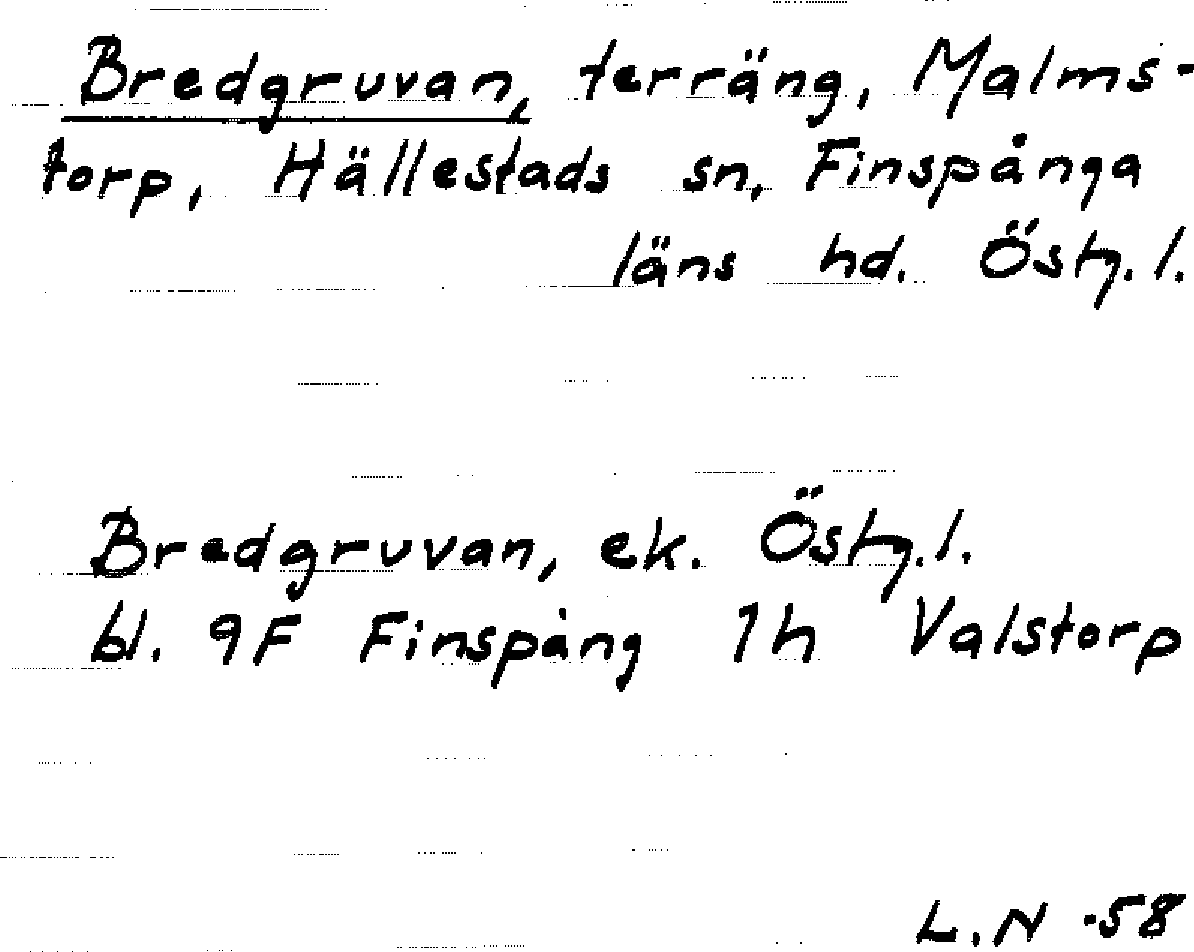 Bredgruvan, terräng, Malms-
torp, Hällestads sn, Finspånga
läns hd. Östg. l.
Bredgruvan, ek. Östg. l.
bl. 9F Finspång 1h Valstorp
L. N -58